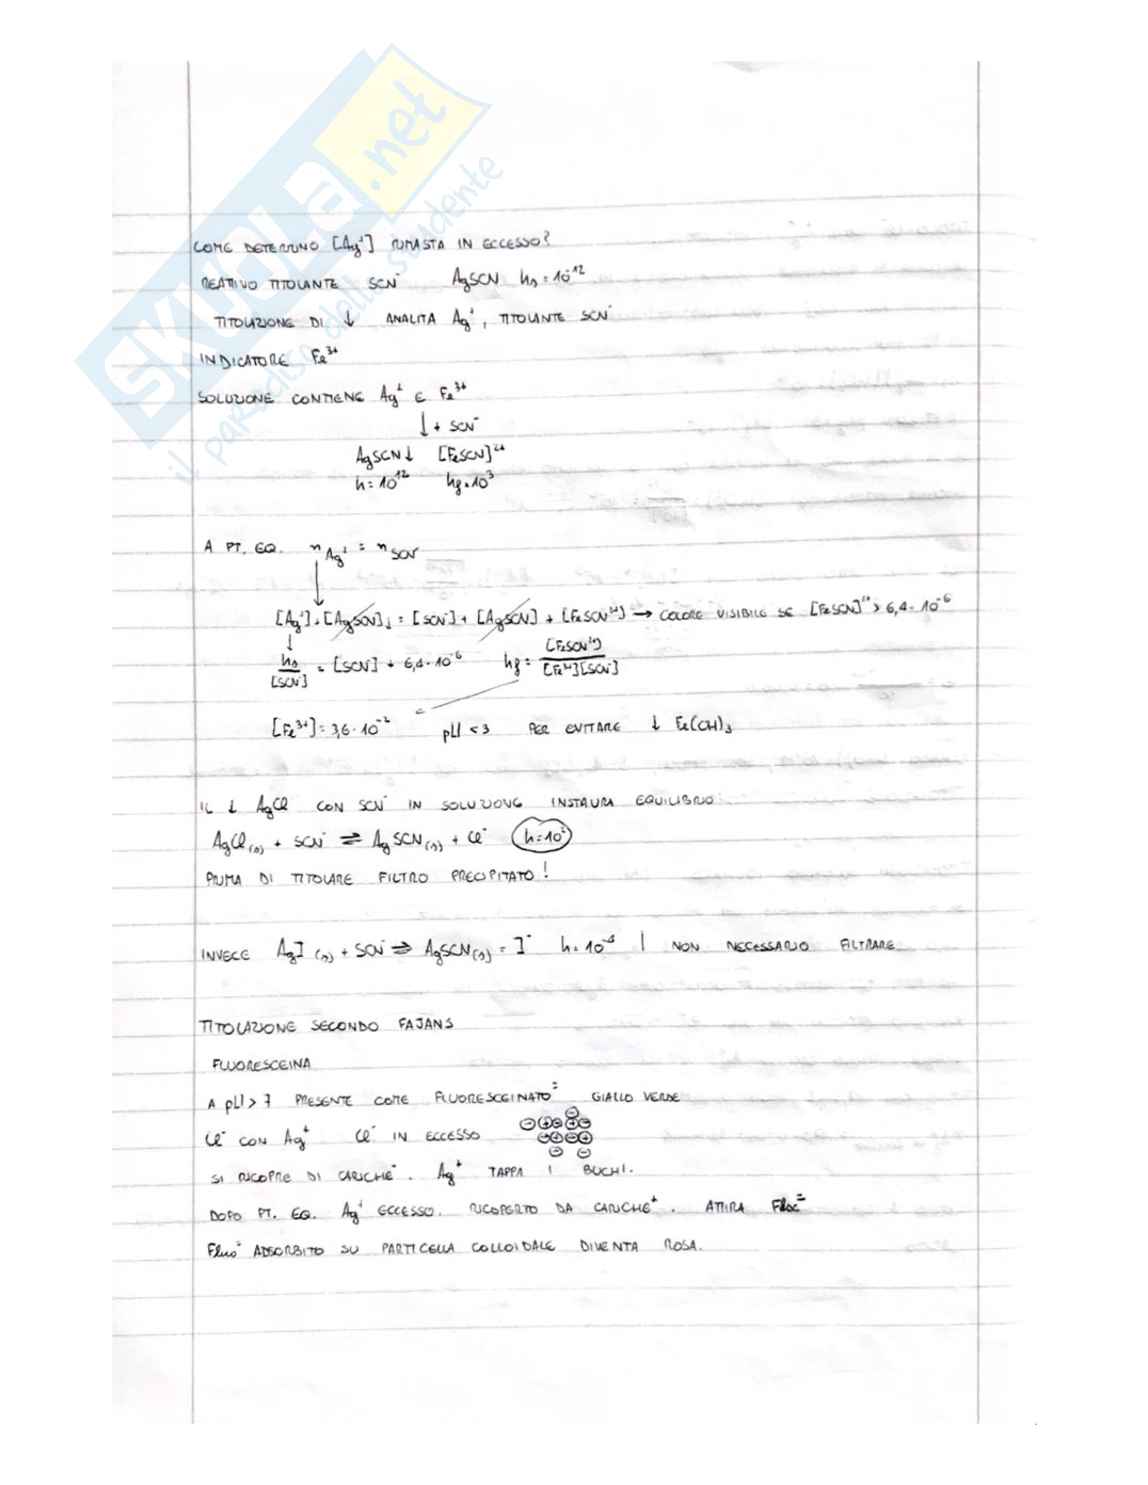 SKUOLA.net
il paradiso dello studente
COME DETERMINO [Ag⁺] RIMASTA IN ECCESSO?
REATTIVO TITOLANTE SCN⁻ AgSCN ks = 10⁻¹²
TITOLAZIONE DI ↓ ANALITA Ag⁺, TITOLANTE SCN⁻
INDICATORE Fe³⁺
SOLUZIONE CONTIENE Ag⁺ E Fe³⁺
↓ + SCN⁻
AgSCN↓ [FeSCN]²⁺
k = 10¹² kf = 10³
A PT. EQ. n Ag⁺ = n SCN⁻
[Ag⁺] + [AgSCN]↓ = [SCN⁻] + [AgSCN] + [FeSCN²⁺] → COLORE VISIBILE SE [FeSCN]²⁺ > 6,4 · 10⁻⁶
ks/[SCN⁻] = [SCN⁻] + 6,4 · 10⁻⁶ kf = [FeSCN²⁺]/[Fe³⁺][SCN⁻]
[Fe³⁺] = 3,6 · 10⁻² pH < 3 PER EVITARE ↓ Fe(OH)₃
IL ↓ AgCl CON SCN⁻ IN SOLUZIONE INSTAURA EQUILIBRIO:
AgCl(s) + SCN⁻ ⇌ AgSCN(s) + Cl⁻ k = 10²
PRIMA DI TITOLARE FILTRO PRECIPITATO!
INVECE AgI (s) + SCN⁻ ⇌ AgSCN(s) = I⁻ k = 10⁻⁵ | NON NECESSARIO FILTRARE
TITOLAZIONE SECONDO FAJANS
FLUORESCEINA
A pH > 7 PRESENTE COME FLUORESCEINATO⁼ GIALLO VERDE
Cl⁻ CON Ag⁺ Cl⁻ IN ECCESSO
SI RICOPRE DI CARICHE⁻. Ag⁺ TAPPA I BUCHI.
DOPO PT. EQ. Ag⁺ ECCESSO. RICOPERTO DA CARICHE⁺. ATTIRA Fluo⁼
Fluo⁼ ADSORBITO SU PARTICELLA COLLOIDALE DIVENTA ROSA.